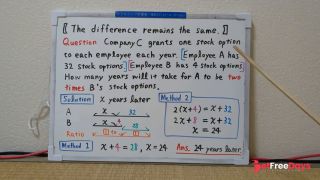 〖 The difference remains the same. 〗
Question Company C grants one stock option
to each employee each year. [Employee A has
32 stock options.] [Employee B has 4 stock options.]
How many years will it take for A to be two
times B's stock options.
Solution x years later
A x 32
B x 4 28
Ratio 1 to 1
Method 1 x+4=28, x=24
Method 2
2(x+4)=x+32
2x+8=x+32
x=24
Ans. 24 years later
GetFreeDays